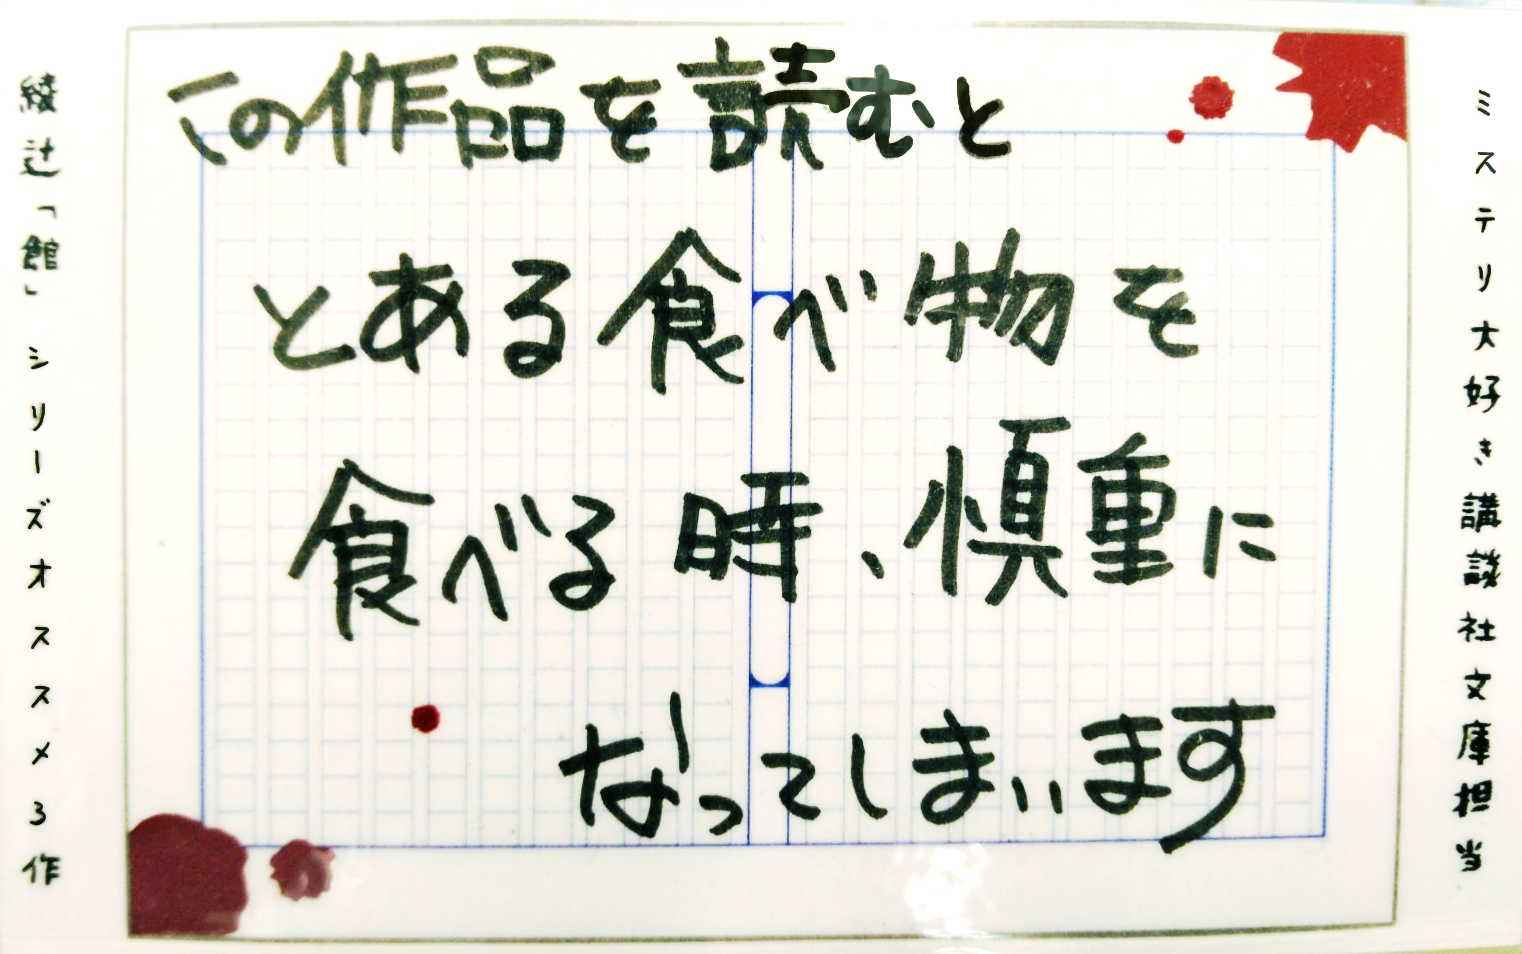 ミステリ大好き講談社文庫担当
この作品を読むと
とある食べ物を
食べる時、慎重に
なってしまいます
綾辻「館」シリーズオススメ3作